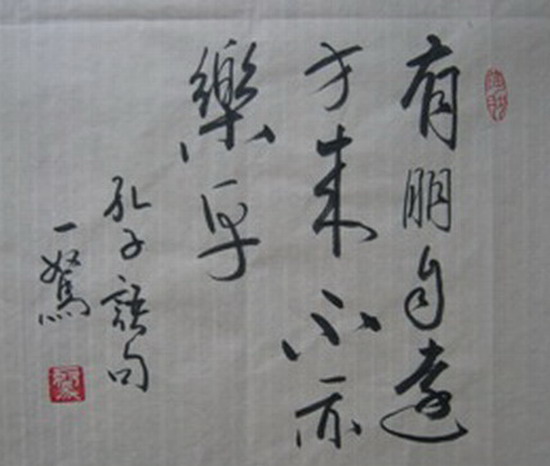 有朋自遠
方来不亦
樂乎
孔子語句
一駑